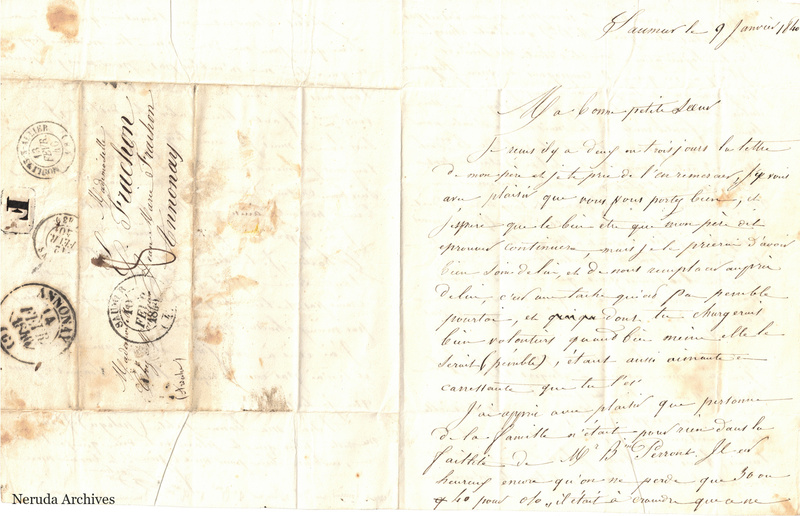 Saumur le 9 Janvier 1840
Ma bonne petite Sœur
Je reçus il y a deux ou trois jours la lettre
de mon père et je te prie de l'en remercier, J'y vois
avec plaisir que vous vous portez bien, et
j'espère que le bien être que mon père dit
éprouver continuera, mais je te prierai d'avoir
bien soin de lui, et de nous remplacer auprès
de lui, c'est une tache qui n'est pas penible
pourtant, et dont tu te chargerais
bien volontiers quand bien même elle le
serait (penible), étant aussi aimante et
carressante que tu l'es
J'ai appris avec plaisir que personne
de la famille n'était pour rien dans la
faillite de Mr Bmi Perront. Il est
heureux encore qu'on ne perde que 30 ou
40 pour 0/0, il était à craindre que ce ne
Mademoiselle
Frachon
Marie Frachon
Annonay
SAUMUR
MOULINS-S-ALLIER
FEVR
ANNONAY
14
FEVR
1840
(6)
Neruda Archives